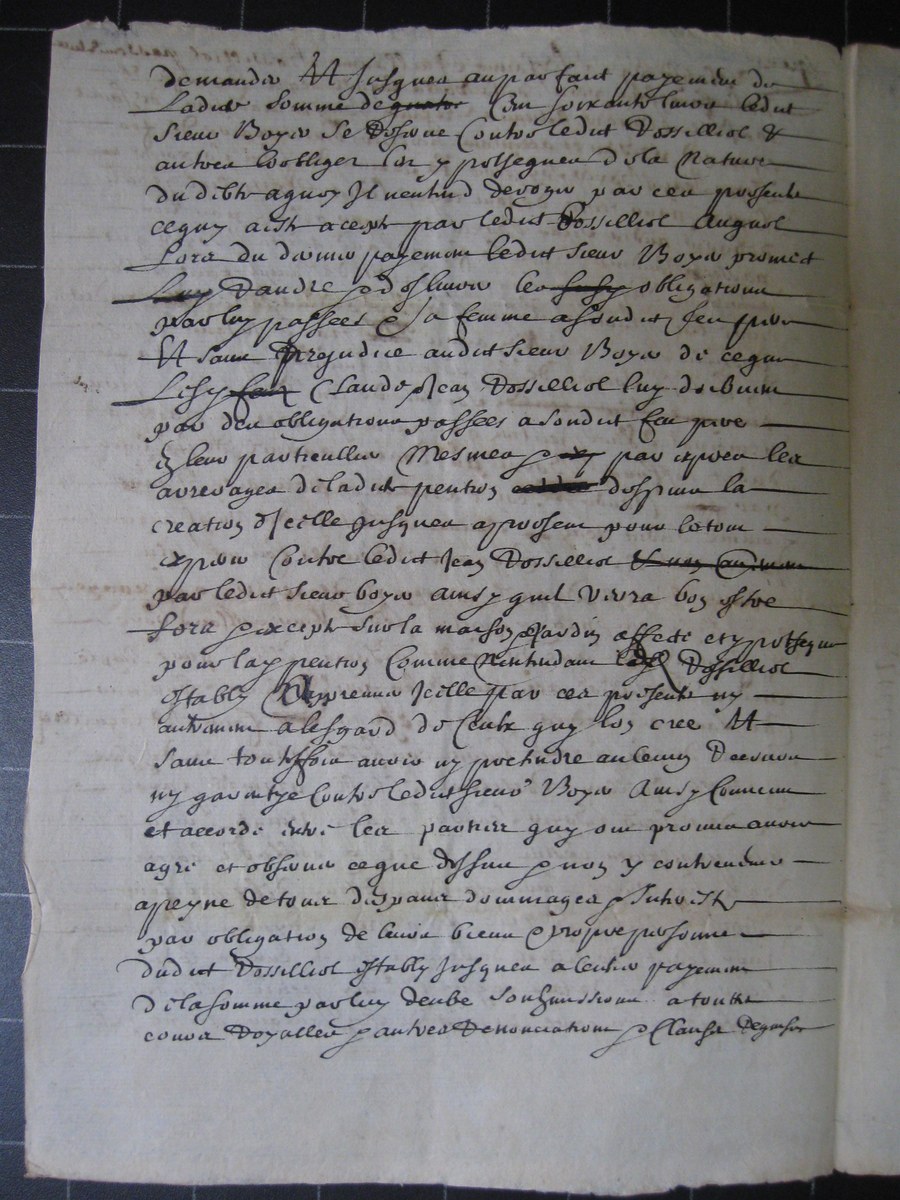 demandes Et jusques au parfaict payement de
Ladicte somme de cen soixante livres ledict
sieur Boyer se deserve contre ledict Dossilliol &
autres coobliges leur ypotsegues de la nature
du dibte a quoy il nentend deroger par ces presentes
ce quy a esté acepté par ledict Dossilliol auquel
Lors du dernier payement ledict sieur Boyer promet
randre & deslivrer les obligations
par luy passées & sa femme a sondict feu pere
Et sans prejudice audict sieur Boyer de ce que
Claude & Jean Dossilliol luy doibvent
par des obligations passées a sondict feu pere
En leur particullier Mesmes & par expres les
arreyages de ladicte pention despuis la
creation dicelle jusques a present pour le tout
expres contre ledict Jean Dossilliol
par ledict sieur boyer ainsy quil verra bon estre
fors & excepté sur la maison & jardin affecté et ypotsequé
pour lad pention comme nentendant led Dossilliol
estably apreuver icelle par ces presentes ny
autrement a lesgard de ceux quy lon cree Et
sans touteffois avoir ny pretendre aulcung recours
ny garentye contre ledict sieur Boyer Ainsy convenu
et accordé entre les parties quy ont promis avoir
agre et observer ce que dessus & non y contrevenir
a peyne de tous despans dommages & interestz
par obligation de leurs biens & propre personne
dudict Dossilliol estably jusques a lentier payement
de la somme par luy deube soubzmissions a toutes
cours Royalles & autres Renonciations & clauses requises